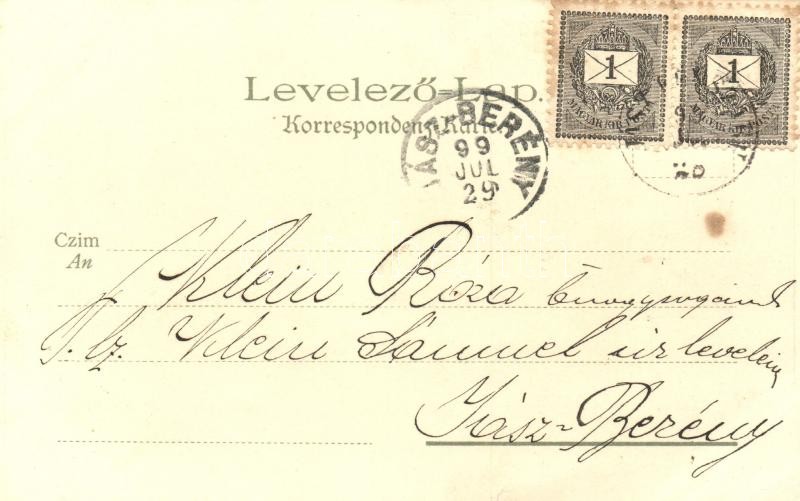 1 1
MAGYAR KIR. POSTA MAGYAR KIR. POSTA
Levelező-Lap.
Korrespondenz-Karte
JÁSZ-BERÉNY
99
JUL
29
Czim
An
Klein Róza
T. cz. Klein Sámuel úr levelein
Jász-Berény